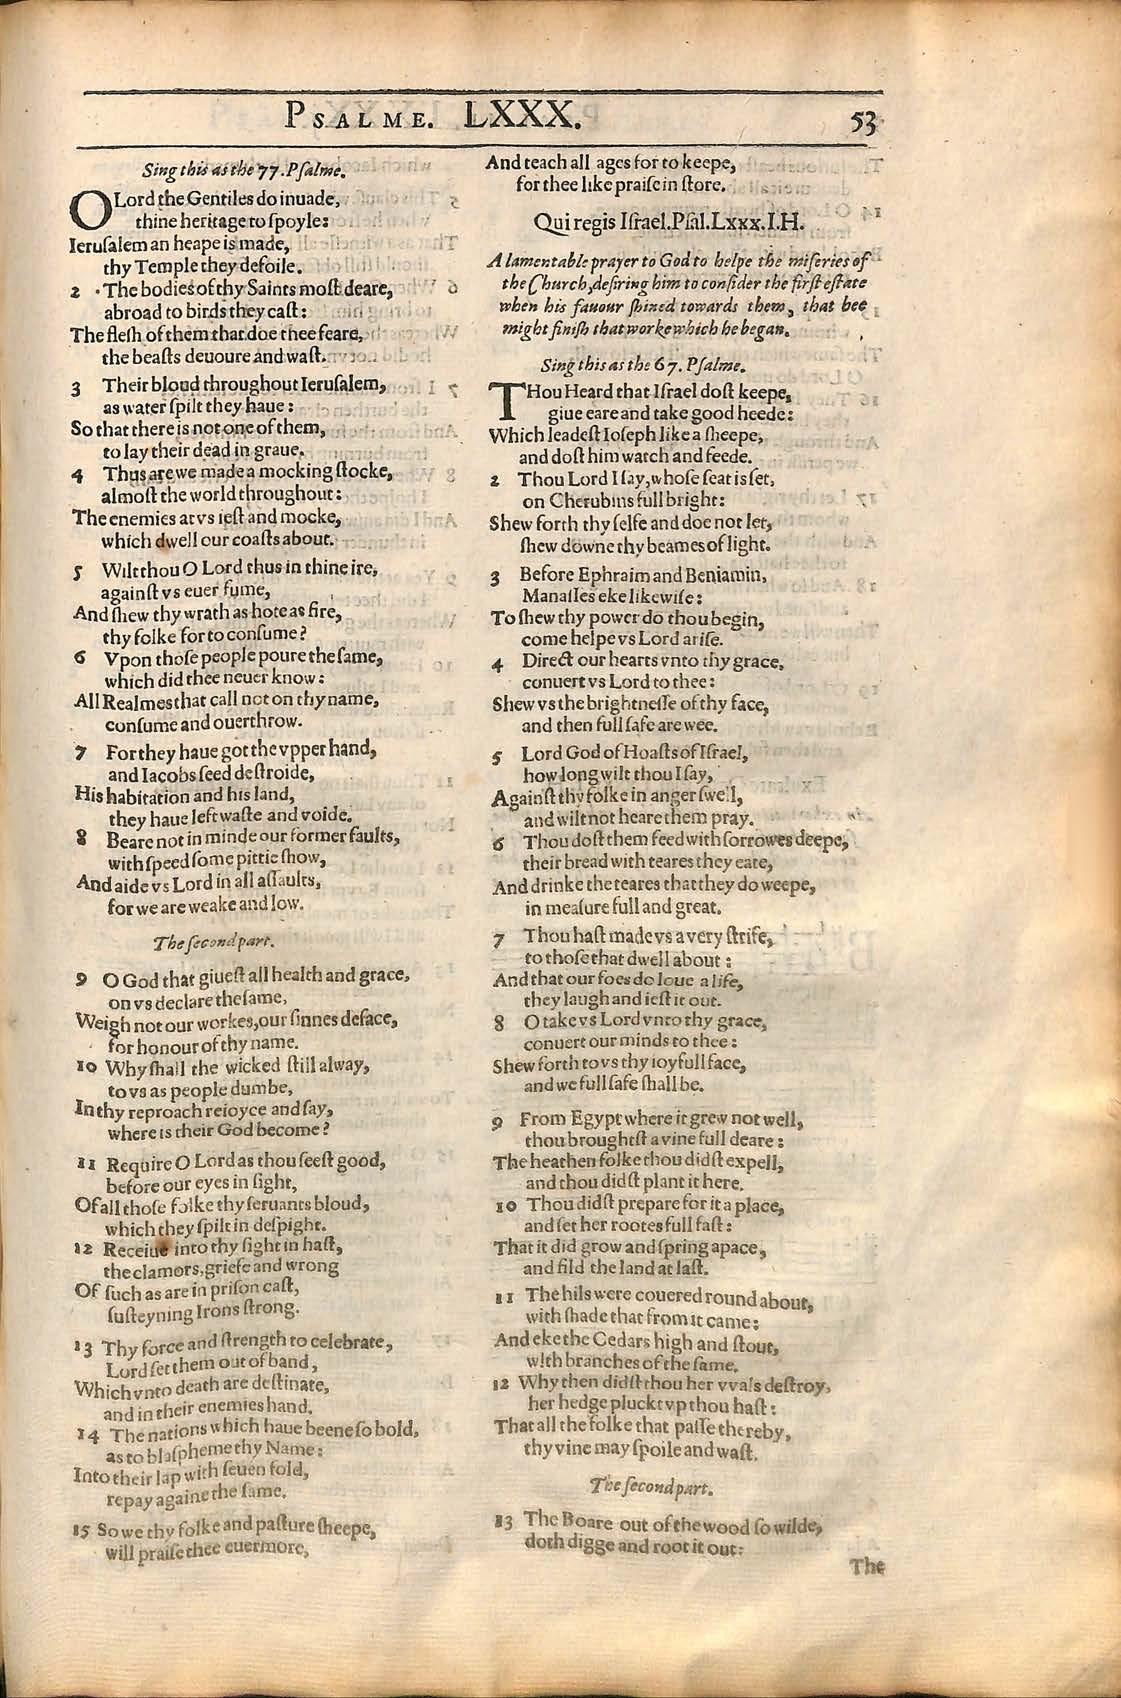 PSALME. LXXX. 53
Sing this as the 77. Pſalme.
O Lord the Gentiles do inuade,
thine heritage to ſpoyle:
Ieruſalem an heape is made,
thy Temple they defoile.
2 The bodies of thy Saints moſt deare,
abroad to birds they caſt:
The fleſh of them that doe thee feare,
the beaſts deuoure and waſt.
3 Their bloud throughout Ieruſalem,
as water ſpilt they haue:
So that there is not one of them,
to lay their dead in graue.
4 Thus are we made a mocking ſtocke,
almoſt the world throughout:
The enemies at vs ieſt and mocke,
which dwell our coaſts about.
5 Wilt thou O Lord thus in thine ire,
againſt vs euer fume,
And ſhew thy wrath as hote as fire,
thy folke for to conſume?
6 Vpon thoſe people poure the ſame,
which did thee neuer know:
All Realmes that call not on thy name,
conſume and ouerthrow.
7 For they haue got the vpper hand,
and Iacobs ſeed deſtroide,
His habitation and his land,
they haue left waſte and voide.
8 Beare not in minde our former faults,
with ſpeed ſome pittie ſhow,
And aide vs Lord in all aſſaults,
for we are weake and low.
The ſecond part.
9 O God that giueſt all health and grace,
on vs declare the ſame,
Weigh not our workes, our ſinnes deface,
for honour of thy name.
10 Why ſhall the wicked ſtill alway,
to vs as people dumbe,
In thy reproach reioyce and ſay,
where is their God become?
11 Require O Lord as thou ſeeſt good,
before our eyes in ſight,
Of all thoſe folke thy ſeruants bloud,
which they ſpilt in deſpight.
12 Receiue into thy ſight in haſt,
the clamors, griefe and wrong
Of ſuch as are in priſon caſt,
ſuſteyning Irons ſtrong.
13 Thy force and ſtrength to celebrate,
Lord ſet them out of band,
Which vnto death are deſtinate,
and in their enemies hand.
14 The nations which haue beene ſo bold,
as to blaſpheme thy Name:
Into their lap with ſeuen fold,
repay againe the ſame.
15 So we thy folke and paſture ſheepe,
will praiſe thee euermore,
And teach all ages for to keepe,
for thee like praiſe in ſtore.
Qui regis Iſrael. Pſal. Lxxx. I. H.
A lamentable prayer to God to helpe the miſeries of
the Church, deſiring him to conſider the firſt eſtate
when his fauour ſhined towards them, that hee
might finiſh that worke which he began.
Sing this as the 67. Pſalme.
THou Heard that Iſrael doſt keepe,
giue eare and take good heede:
Which leadeſt Ioſeph like a ſheepe,
and doſt him watch and feede.
2 Thou Lord I ſay, whoſe ſeat is ſet,
on Cherubins full bright:
Shew forth thy ſelfe and doe not let,
ſhew downe thy beames of light.
3 Before Ephraim and Beniamin,
Manaſſes eke likewiſe:
To ſhew thy power do thou begin,
come helpe vs Lord ariſe.
4 Direct our hearts vnto thy grace,
conuert vs Lord to thee:
Shew vs the brightneſſe of thy face,
and then full ſafe are wee.
5 Lord God of Hoaſts of Iſrael,
how long wilt thou I ſay,
Againſt thy folke in anger ſwell,
and wilt not heare them pray.
6 Thou doſt them feed with ſorrowes deepe,
their bread with teares they eate,
And drinke the teares that they do weepe,
in meaſure full and great.
7 Thou haſt made vs a very ſtrife,
to thoſe that dwell about:
And that our foes do loue a life,
they laugh and ieſt it out.
8 O take vs Lord vnto thy grace,
conuert our minds to thee:
Shew forth to vs thy ioyfull face,
and we full ſafe ſhall be.
9 From Egypt where it grew not well,
thou broughtſt a vine full deare:
The heathen folke thou didſt expell,
and thou didſt plant it here.
10 Thou didſt prepare for it a place,
and ſet her rootes full faſt:
That it did grow and ſpring apace,
and fild the land at laſt.
11 The hils were couered round about,
with ſhade that from it came:
And eke the Cedars high and ſtout,
with branches of the ſame.
12 Why then didſt thou her vvals deſtroy,
her hedge pluckt vp thou haſt:
That all the folke that paſſe thereby,
thy vine may ſpoile and waſt.
The ſecond part.
13 The Boare out of the wood ſo wilde,
doth digge and root it out:
The